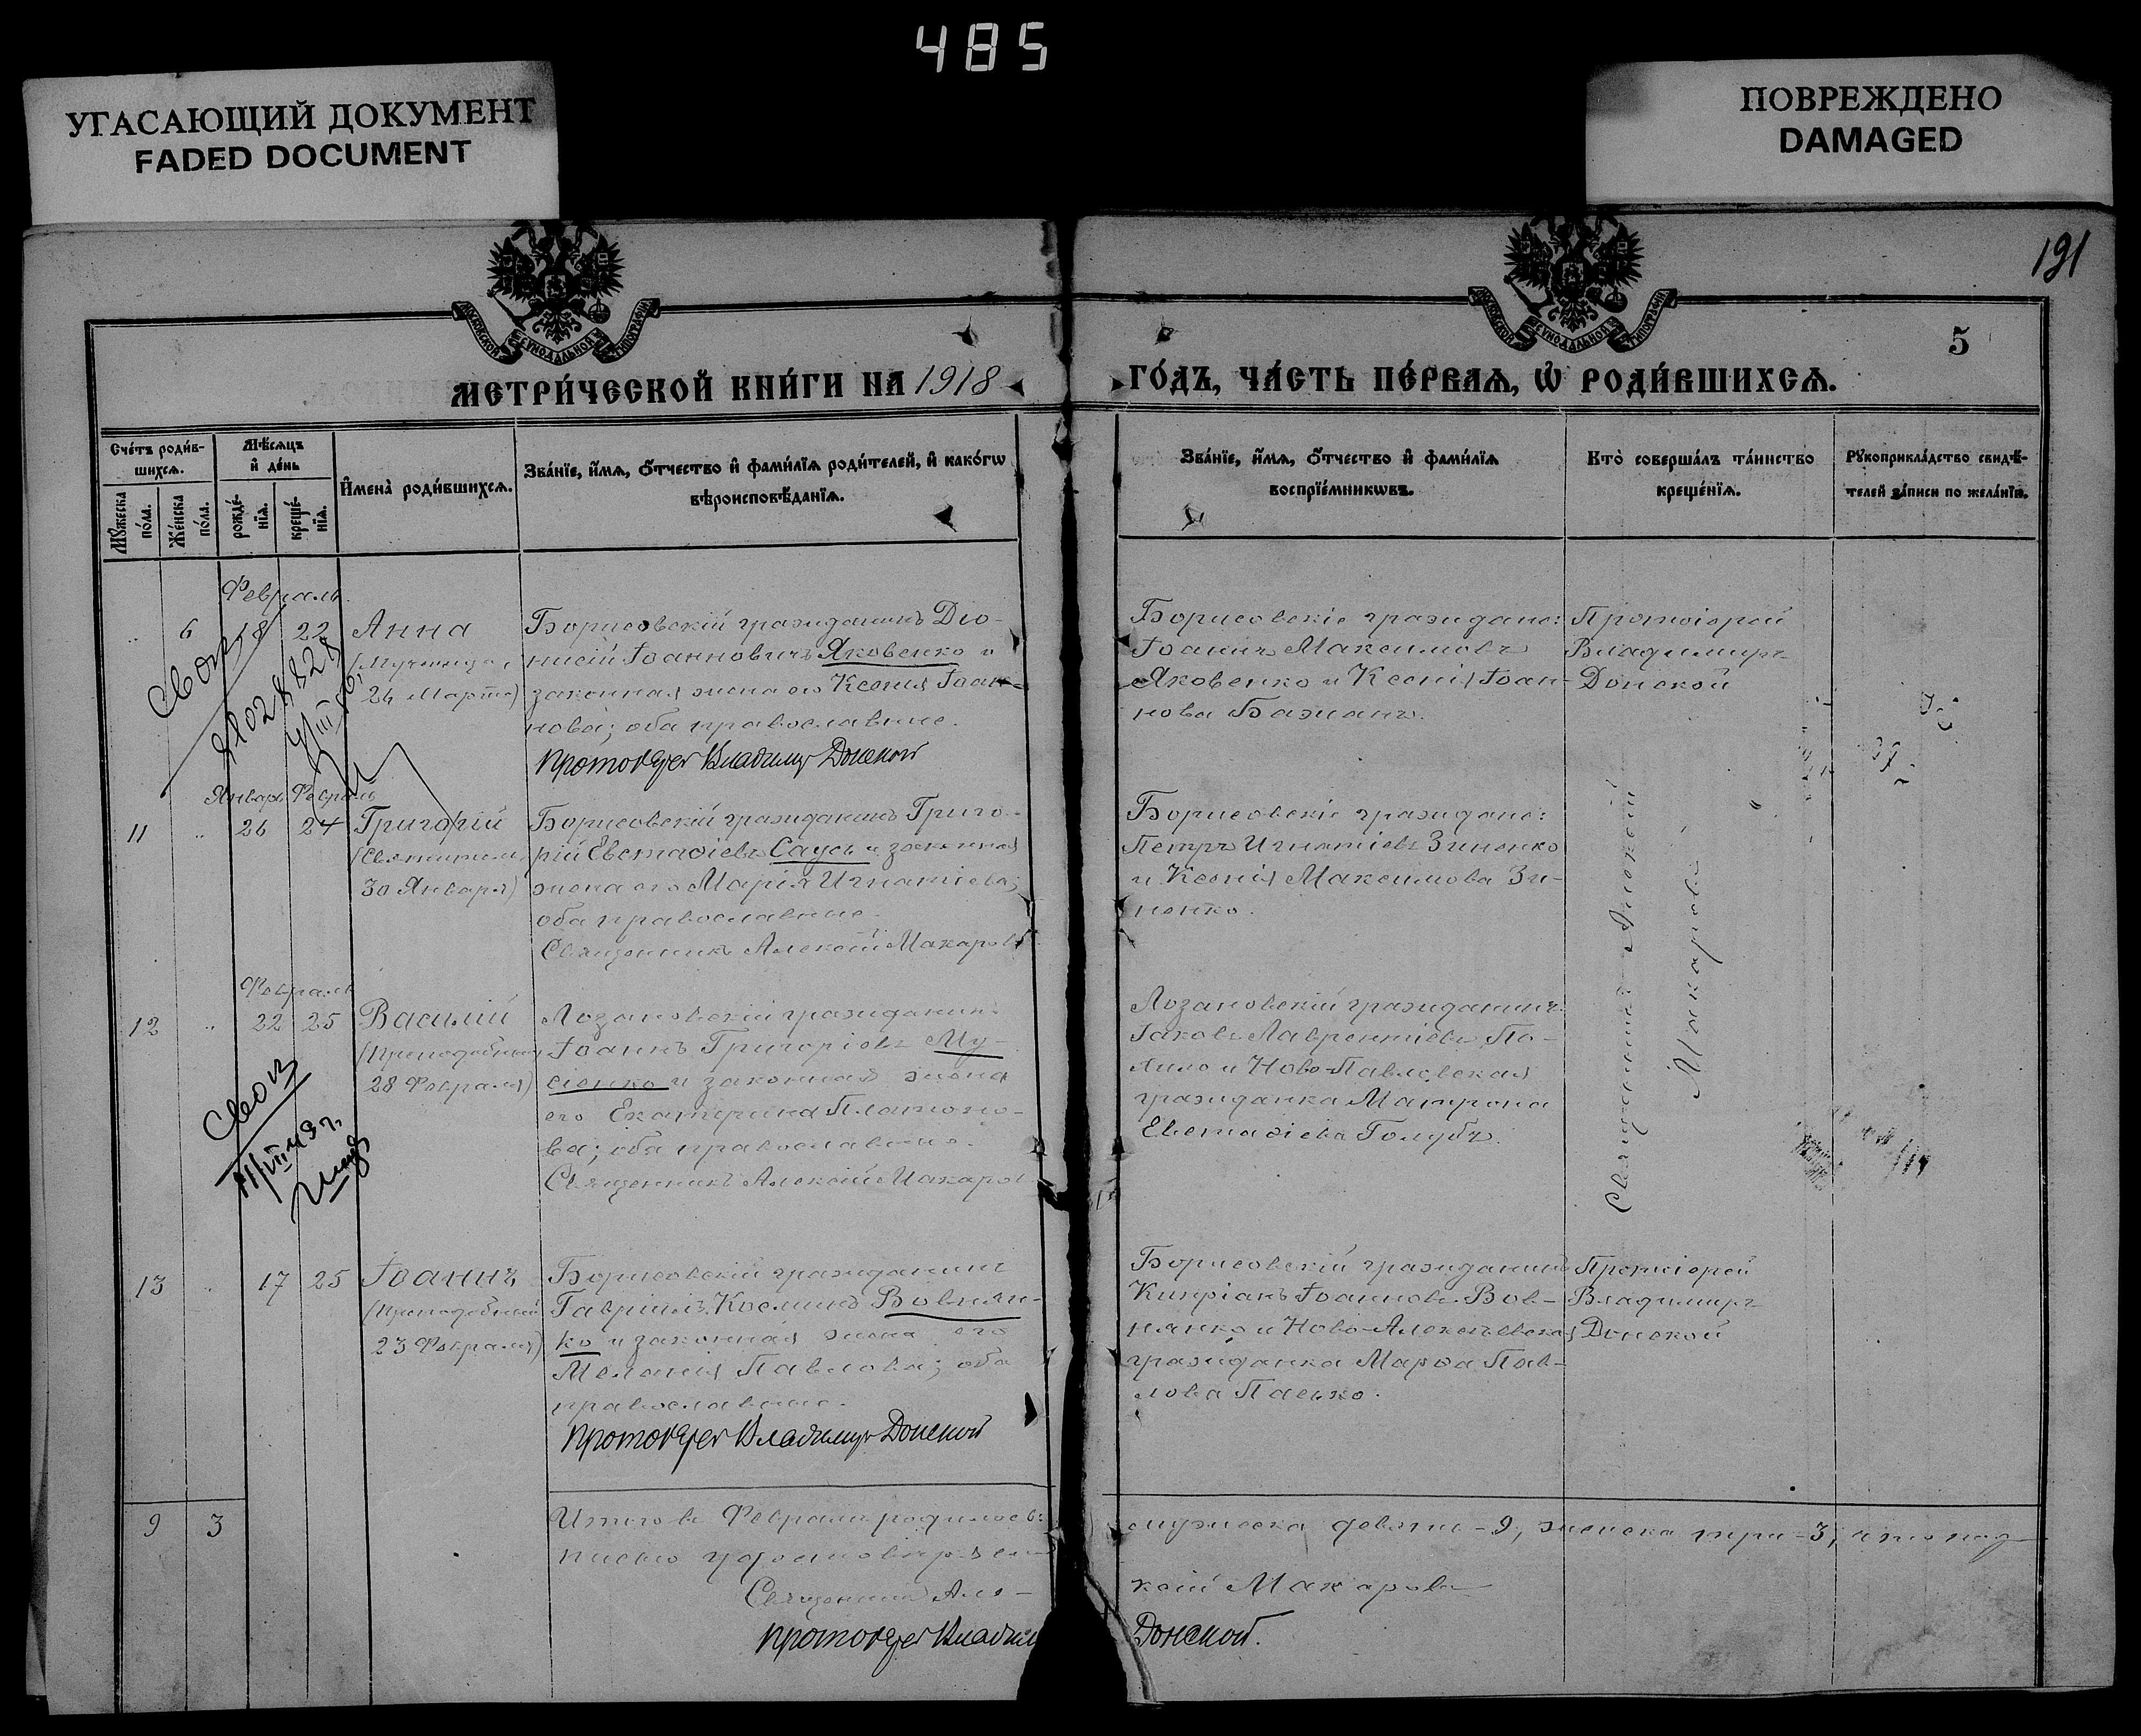 485
УГАСАЮЩИЙ ДОКУМЕНТ
FADED DOCUMENT
ПОВРЕЖДЕНО
DAMAGED
191
МОСКОВСКОЙ СѴНОДАЛЬНОЙ ТИПОГРАФІИ
МОСКОВСКОЙ СѴНОДАЛЬНОЙ ТИПОГРАФІИ
5
МЕТРИ́ЧЕСКОЙ КНИ́ГИ НА 1918
ГО́ДЪ, ЧА́СТЬ ПЕ́РВАѦ, Ѡ҆ РОДИ́ВШИХСѦ.
Сче́тъ роди́в-
шихсѧ.
Мѣ́сѧцъ
и҆ де́нь
Мꙋ́жеска
по́ла.
Же́нска
по́ла.
рожде́-
нїѧ.
креще́-
нїѧ.
И҆мена̀ роди́вшихсѧ.
Зва́нїе, и҆́мѧ, ѻ҆́тчество и҆ фами́лїѧ роди́телей, и҆ како́гѡ
вѣроисповѣ́данїѧ.
Зва́нїе, и҆́мѧ, ѻ҆́тчество и҆ фами́лїѧ
воспрїе́мникѡвъ.
Кто̀ соверша́лъ та́инство
креще́нїѧ.
Рꙋкоприкла́дство свидѣ́-
телей за́писи по жела́нїю.
Февраль
„ 6 18 22 Анна
(Мученица,
26 Марта)
Борисовскій гражданинъ Діо-
нисій Іоанновичъ Яковенко и
законная жена его Ксенія Іоан-
нова; оба православные.
Протоіерей Владимір Донской
Борисовскіе граждане:
Іоаннъ Максимовъ
Яковенко и Ксенія Іоан-
нова Бажанъ.
Протоіерей
Владиміръ
Донской
Январь Февраль
11 „ 26 24 Григорій
(Святитель,
30 Января)
Борисовскій гражданинъ Григо-
рій Евстафіевъ Саусь и законная
жена его Марія Игнатіева;
оба православные.
Священникъ Алексій Макаровъ
Борисовскіе граждане:
Петръ Игнатіевъ Зиненко
и Ксенія Максимова Зи-
ненко.
Священникъ Алексій
Макаровъ
Февраль
12 „ 22 25 Василій
(Преподобный
28 Февраля)
Лозановскій гражданинъ
Іоаннъ Григоріевъ Му-
сіенко и законная жена
его Екатерина Платоно-
ва; оба православные.
Священникъ Алексій Макаровъ
Лозановскій гражданинъ
Іаковъ Лаврентіевъ По-
и Ново-Павловская
гражданка Матрона
Евстафіева Голубъ.
13 „ 17 25 Іоаннъ
(Преподобный
23 Февраля)
Борисовскій гражданинъ
Гавріилъ Косминъ Вовнян-
ко и законная жена его
Меланія Павлова; оба
православные.
Протоіерей Владимір Донской
Борисовскій гражданинъ
Кипріанъ Іоанновъ Вов-
нянко и Ново-Алексѣевская
гражданка Марфа Пав-
лова Пасько.
Протоіерей
Владиміръ
Донской
9 3
Итого въ Февралѣ родилось:
мужеска девять-9, женска три-3, что под-
писью удостовѣряемъ
Священникъ Але-
ксій Макаровъ
Протоіерей Владимір
Донской.